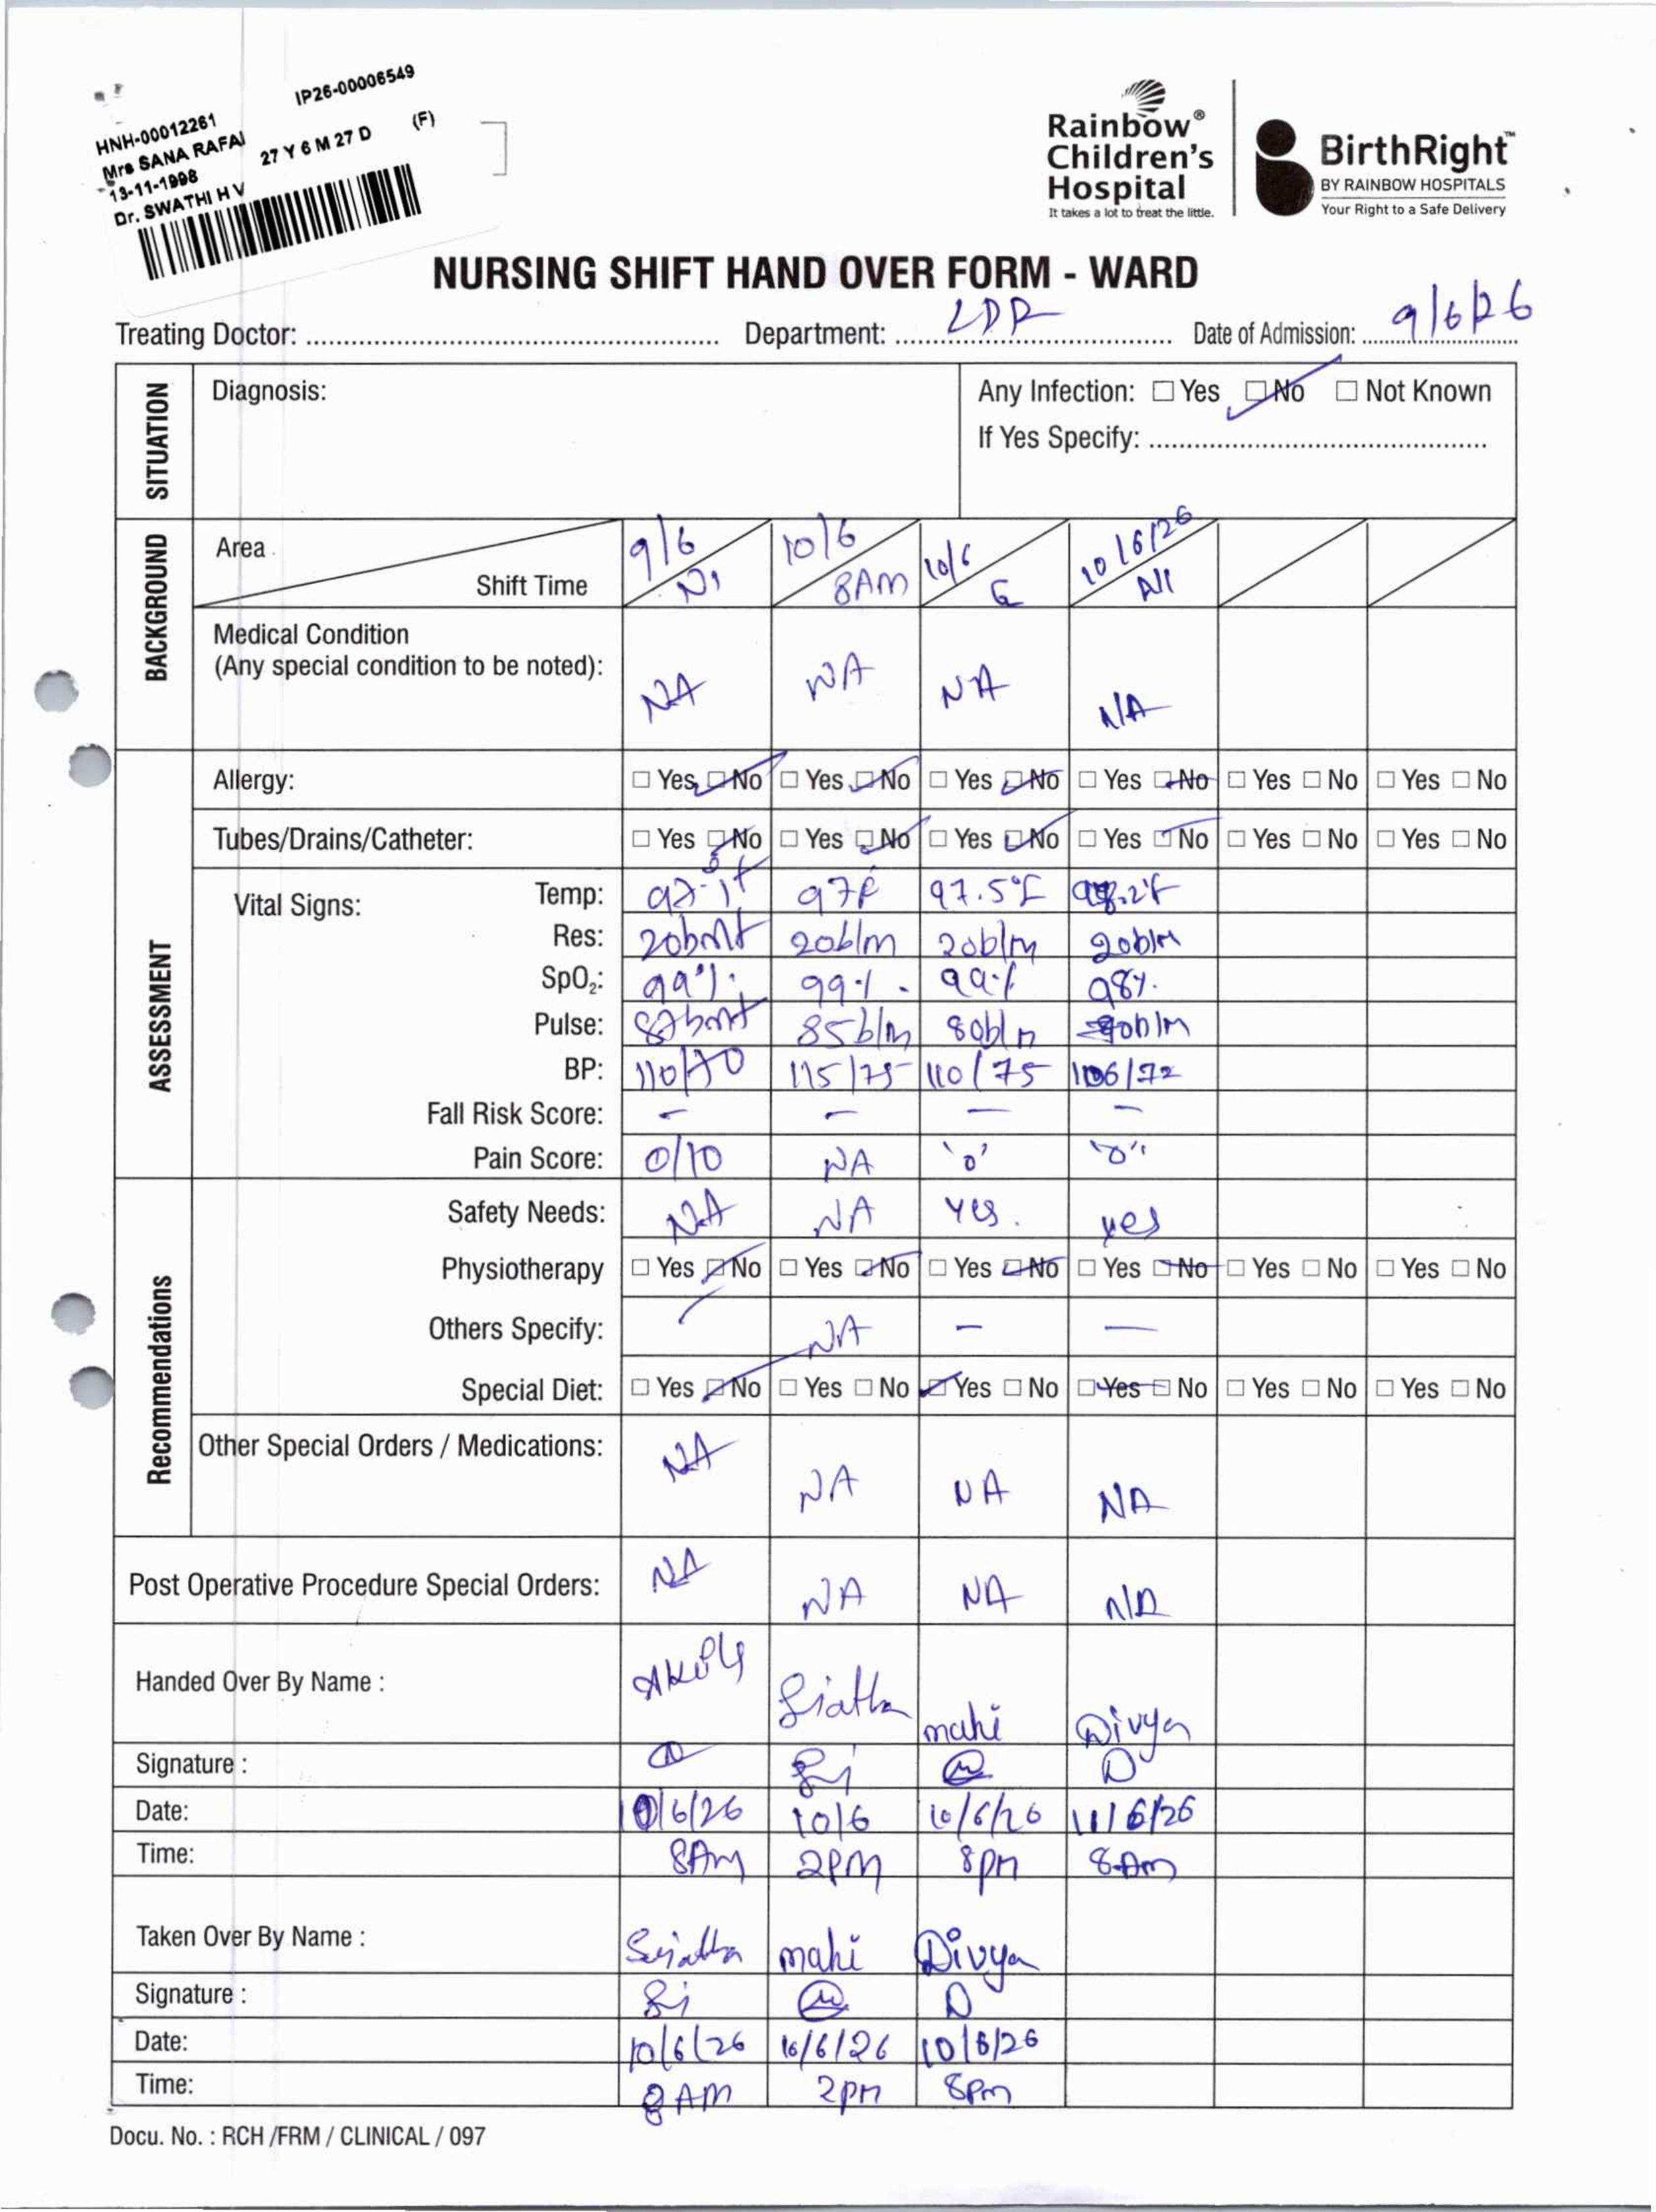 IP26-00006549
HNH-00012261
Mrs SANA RAFAI 27 Y 6 M 27 D (F)
13-11-1998
Dr. SWATHI H V
Rainbow®
Children's
Hospital
It takes a lot to treat the little.
BirthRight™
BY RAINBOW HOSPITALS
Your Right to a Safe Delivery
NURSING SHIFT HAND OVER FORM - WARD
Treating Doctor: Department: LDR Date of Admission: 9/6/26
SITUATION
Diagnosis:
Any Infection: Yes No Not Known
If Yes Specify:
BACKGROUND
Area 9/6 10/6 10/6 10/6/26
Shift Time 8AM E
Medical Condition
(Any special condition to be noted): NA NA NA N/A
ASSESSMENT
Allergy: Yes No Yes No Yes No Yes No Yes No Yes No
Tubes/Drains/Catheter: Yes No Yes No Yes No Yes No Yes No Yes No
Vital Signs:
Temp: 97F 97.5°F
Res: 20bmt 20b/m 20b/m 20b/m
SpO₂: 99% 99% 99% 98%
Pulse: 85b/m 80b/m
BP: 110/70 115/75 110/75 106/72
Fall Risk Score: - - - -
Pain Score: 0/10 NA '0' "0"
Recommendations
Safety Needs: NA NA Yes. yes
Physiotherapy Yes No Yes No Yes No Yes No Yes No Yes No
Others Specify: NA - -
Special Diet: Yes No Yes No Yes No Yes No Yes No Yes No
Other Special Orders / Medications: NA NA NA NA
Post Operative Procedure Special Orders: NA NA NA N/A
Handed Over By Name : mahi Divya
Signature :
Date: 10/6/26 10/6 10/6/26 11/6/26
Time: 8Am 2PM 8pm 8Am
Taken Over By Name : mahi Divya
Signature :
Date: 10/6/26 10/6/26 10/6/26
Time: 8AM 2pm 8pm
Docu. No. : RCH /FRM / CLINICAL / 097